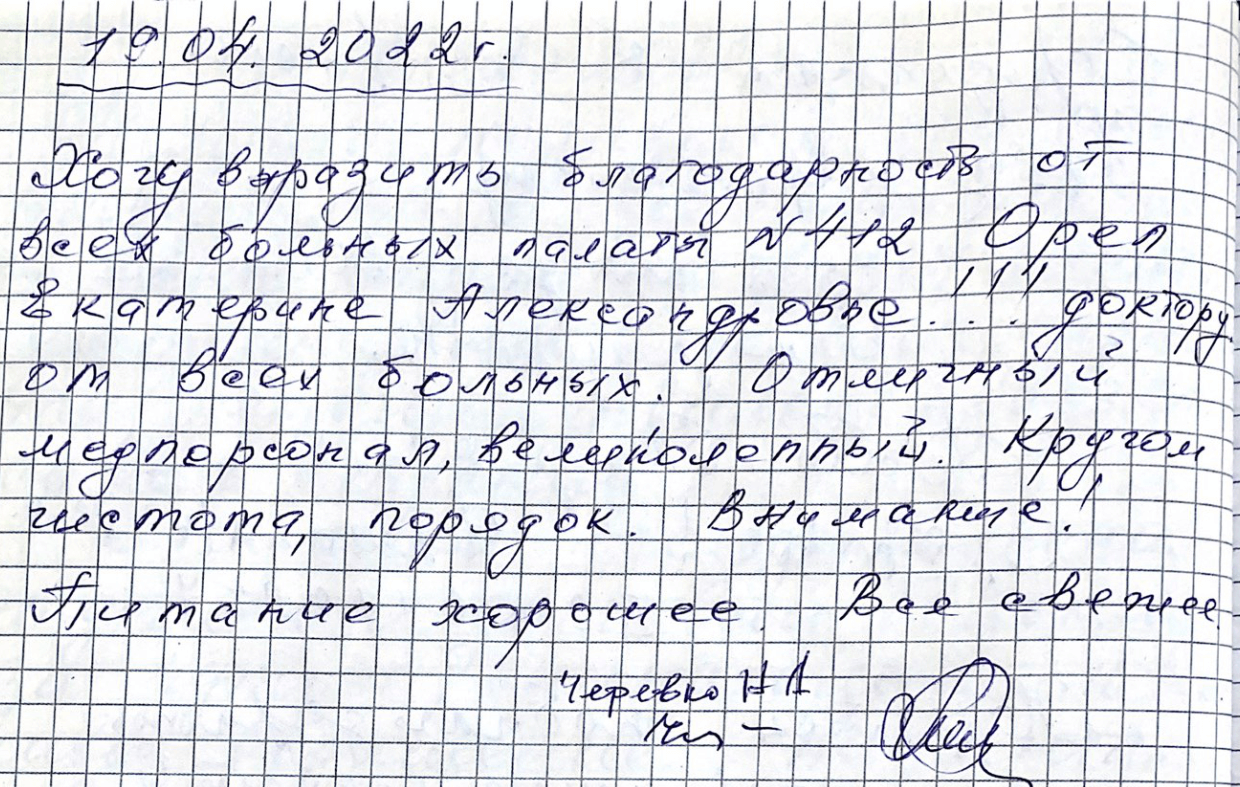 19.04.2022г.
Хочу выразить благодарность от
всех больных палаты №412 Орел
Екатерине Александровне...!!! доктору
от всех больных. Отличный
медперсонал, великолепный. Кругом
чистота, порядок. Внимание!
Питание хорошее. Все свежее
Черевко Н А